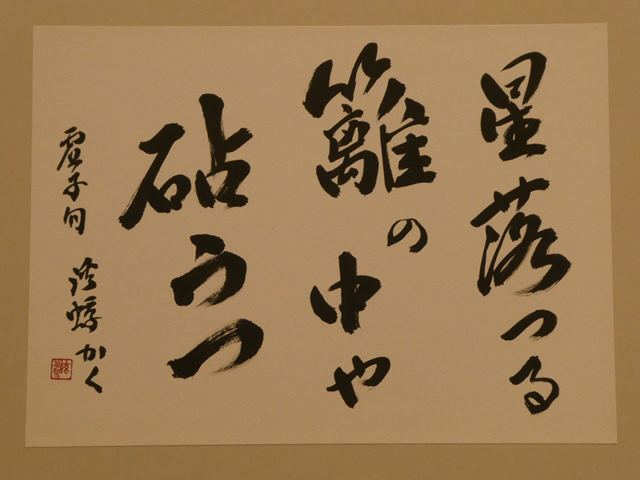 星落つる
籬の中や
砧うつ
虚子句
かく